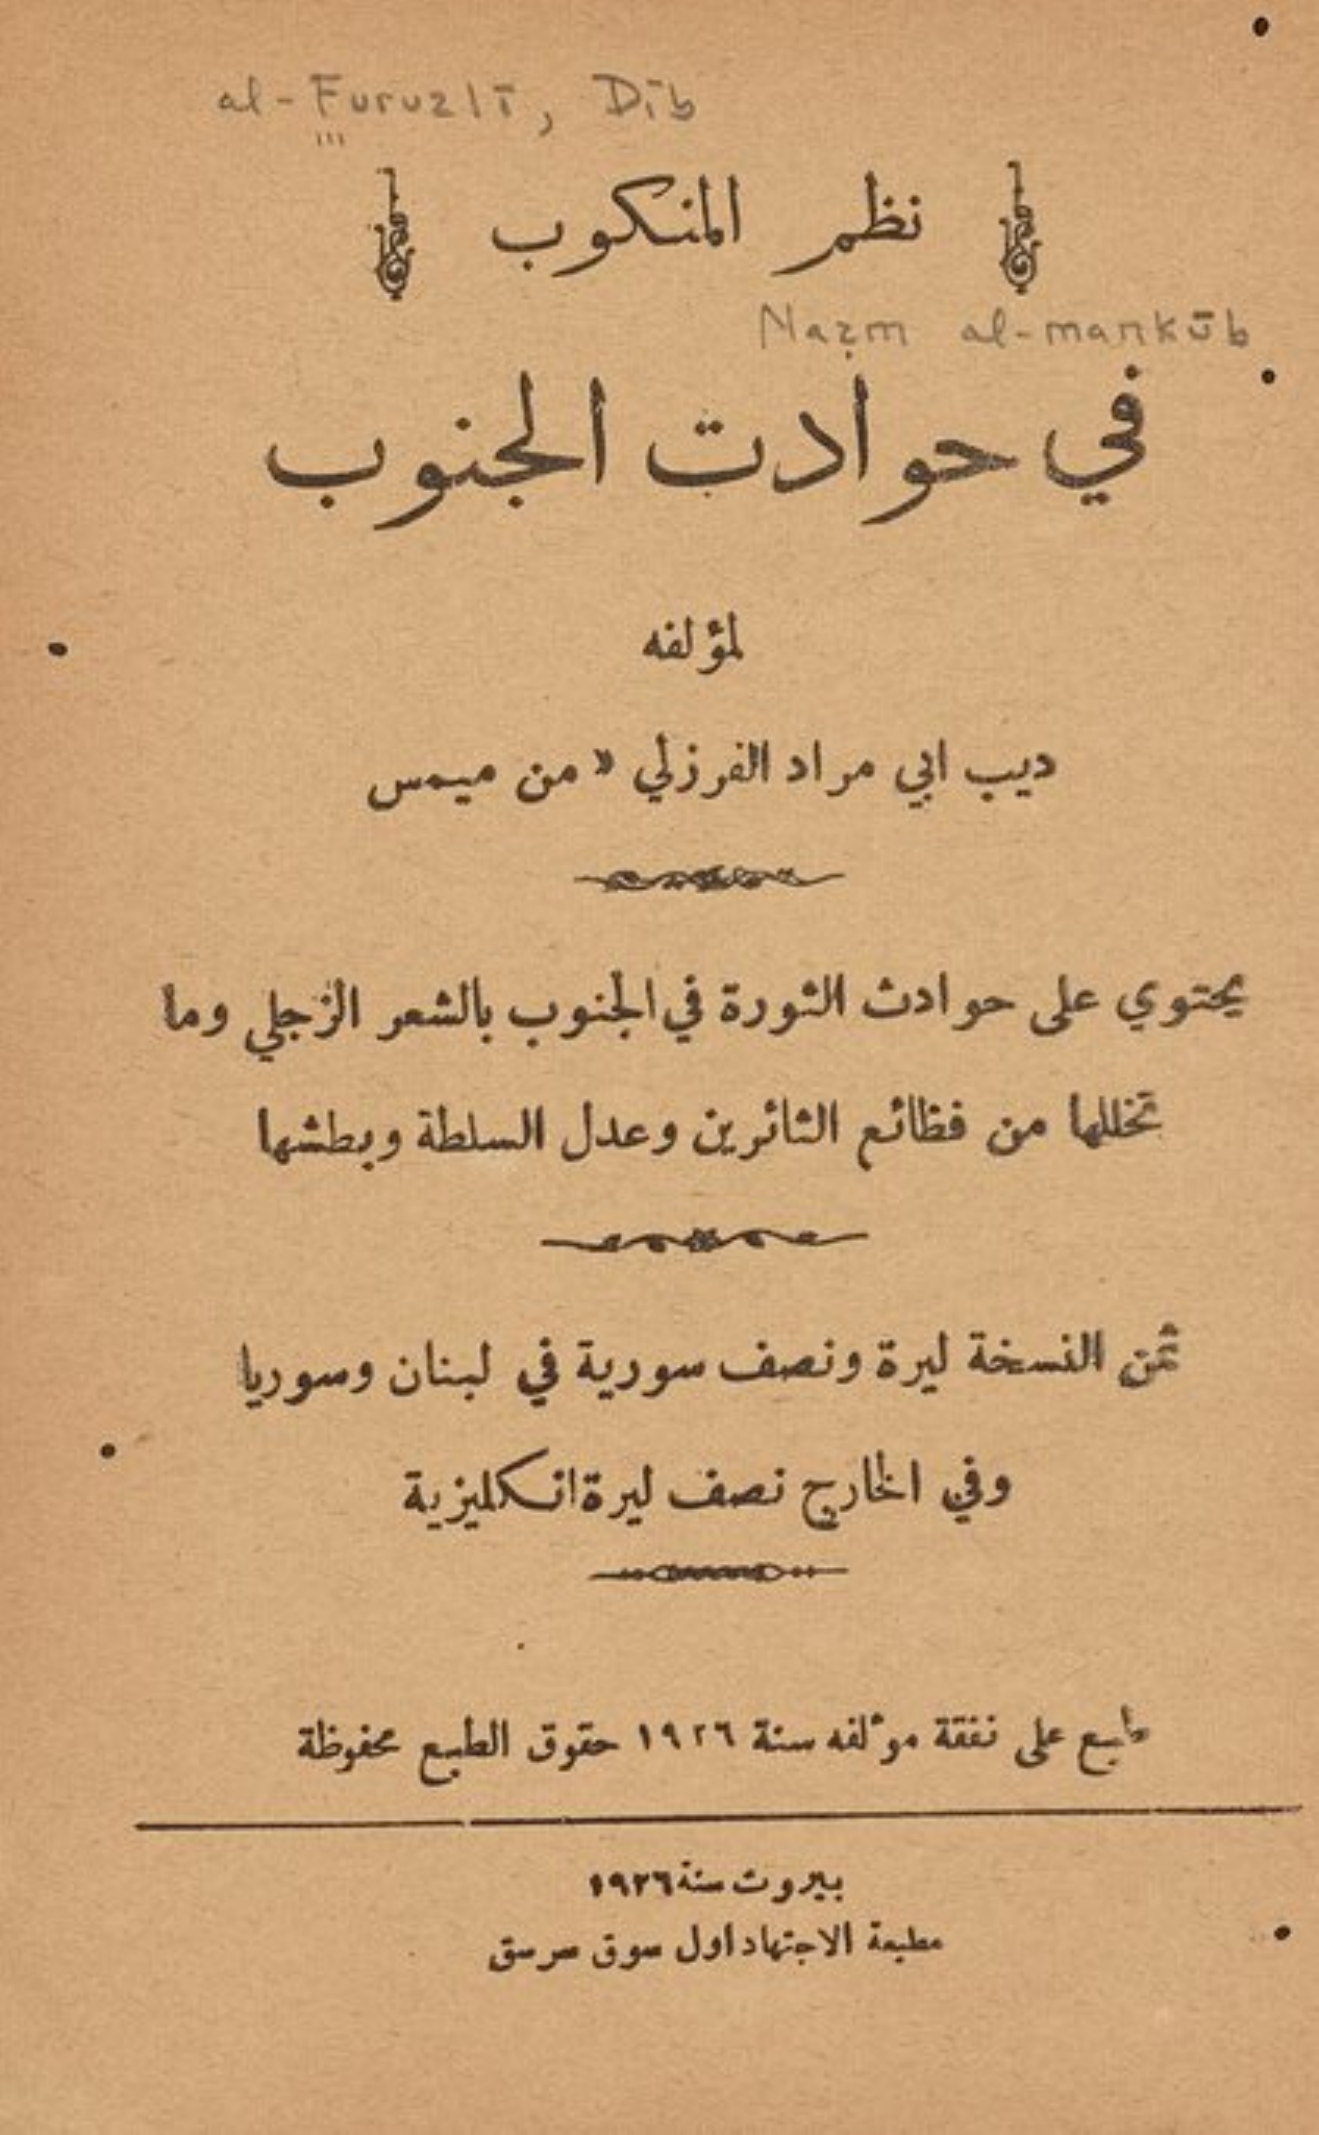 al-Furuzlī, Dīb
نظم المنكوب
Naẓm al-mankūb
في حوادت الجنوب
لمؤلفه
ديب ابي مراد الفرزلي « من ميمس
يحتوي على حوادث الثورة في الجنوب بالشعر الزجلي وما
تخللها من فظائع الثائرين وعدل السلطة وبطشها
ثمن النسخة ليرة ونصف سورية في لبنان وسوريا
وفي الخارج نصف ليرة انكليزية
طبع على نفقة مؤلفه سنة ١٩٢٦ حقوق الطبع محفوظة
بيروت سنة ١٩٢٦
مطبعة الاجتهاد اول سوق سرسق